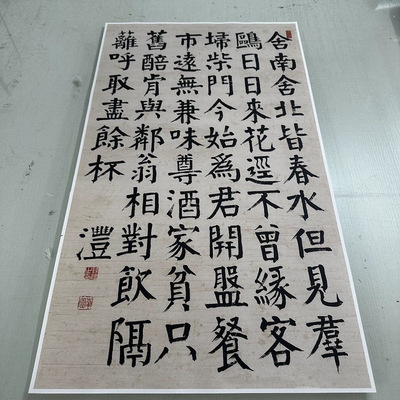 舍南舍北皆春水但見羣
鷗日日來花逕不曾緣客
埽柴門今始爲君開盤餐
市遠無兼味尊酒家貧只
舊醅肯與鄰翁相對飲隔
蘺呼取盡餘杯
澧